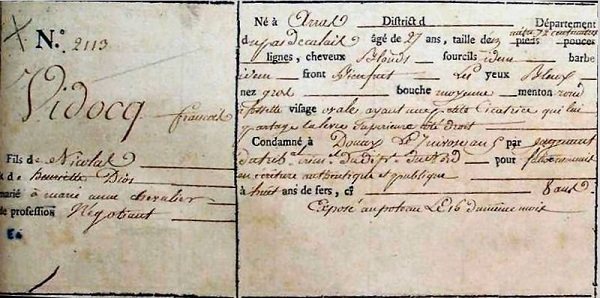 N.° 2113
Vidocq françois
Fils de Nicolas
& de henriette Dion
marié à marie anne chevalier
de profession Négotiant
Né à Arras District d Département
du pas de calais âgé de 27 ans, taille de 1 mètre 72 centimètres pieds pouces
lignes, cheveux Blonds sourcils idem barbe
idem front yeux Bleux
nez gros bouche moyenne menton rond
à fossette visage ovale ayant une petite Cicatrice qui lui
partage la lèvre Supérieure côté droit
Condamné à Douay Le par jugement
du trib. crim. du dépt. du Nord pour faux commis
en écriture authentique et publique
à huit ans de fers, ci 8 ans
Exposé au poteau Le 16 du même mois